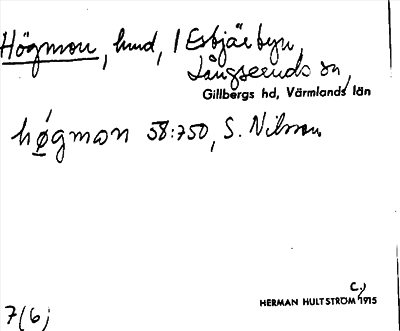 Högmon, hmd, / Esbjörbyn,
Långseruds sn,
Gillbergs hd, Värmlands län
høgmon 58:750, S. Nilsson
C.,
HERMAN HULTSTRÖM 1915
7(6)